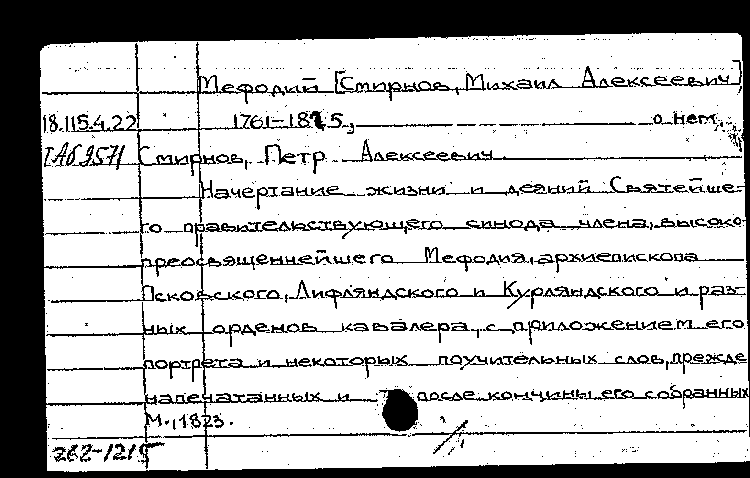 Мефодий [Смирнов, Михаил Алексеевич]
18.115.4.22 1761-1815, о нем.
ТАб 9571 Смирнов, Петр Алексеевич.
Начертание жизни и деяний Святейше-
го правительствующего синода члена, высоко-
преосвященнейшего Мефодия, архиепископа
Псковского, Лифляндского и Курляндского и раз-
ных орденов кавалера, с приложением его
портрета и некоторых поучительных слов, прежде
напечатанных и после кончины его собранных
М., 1823.
262-1215